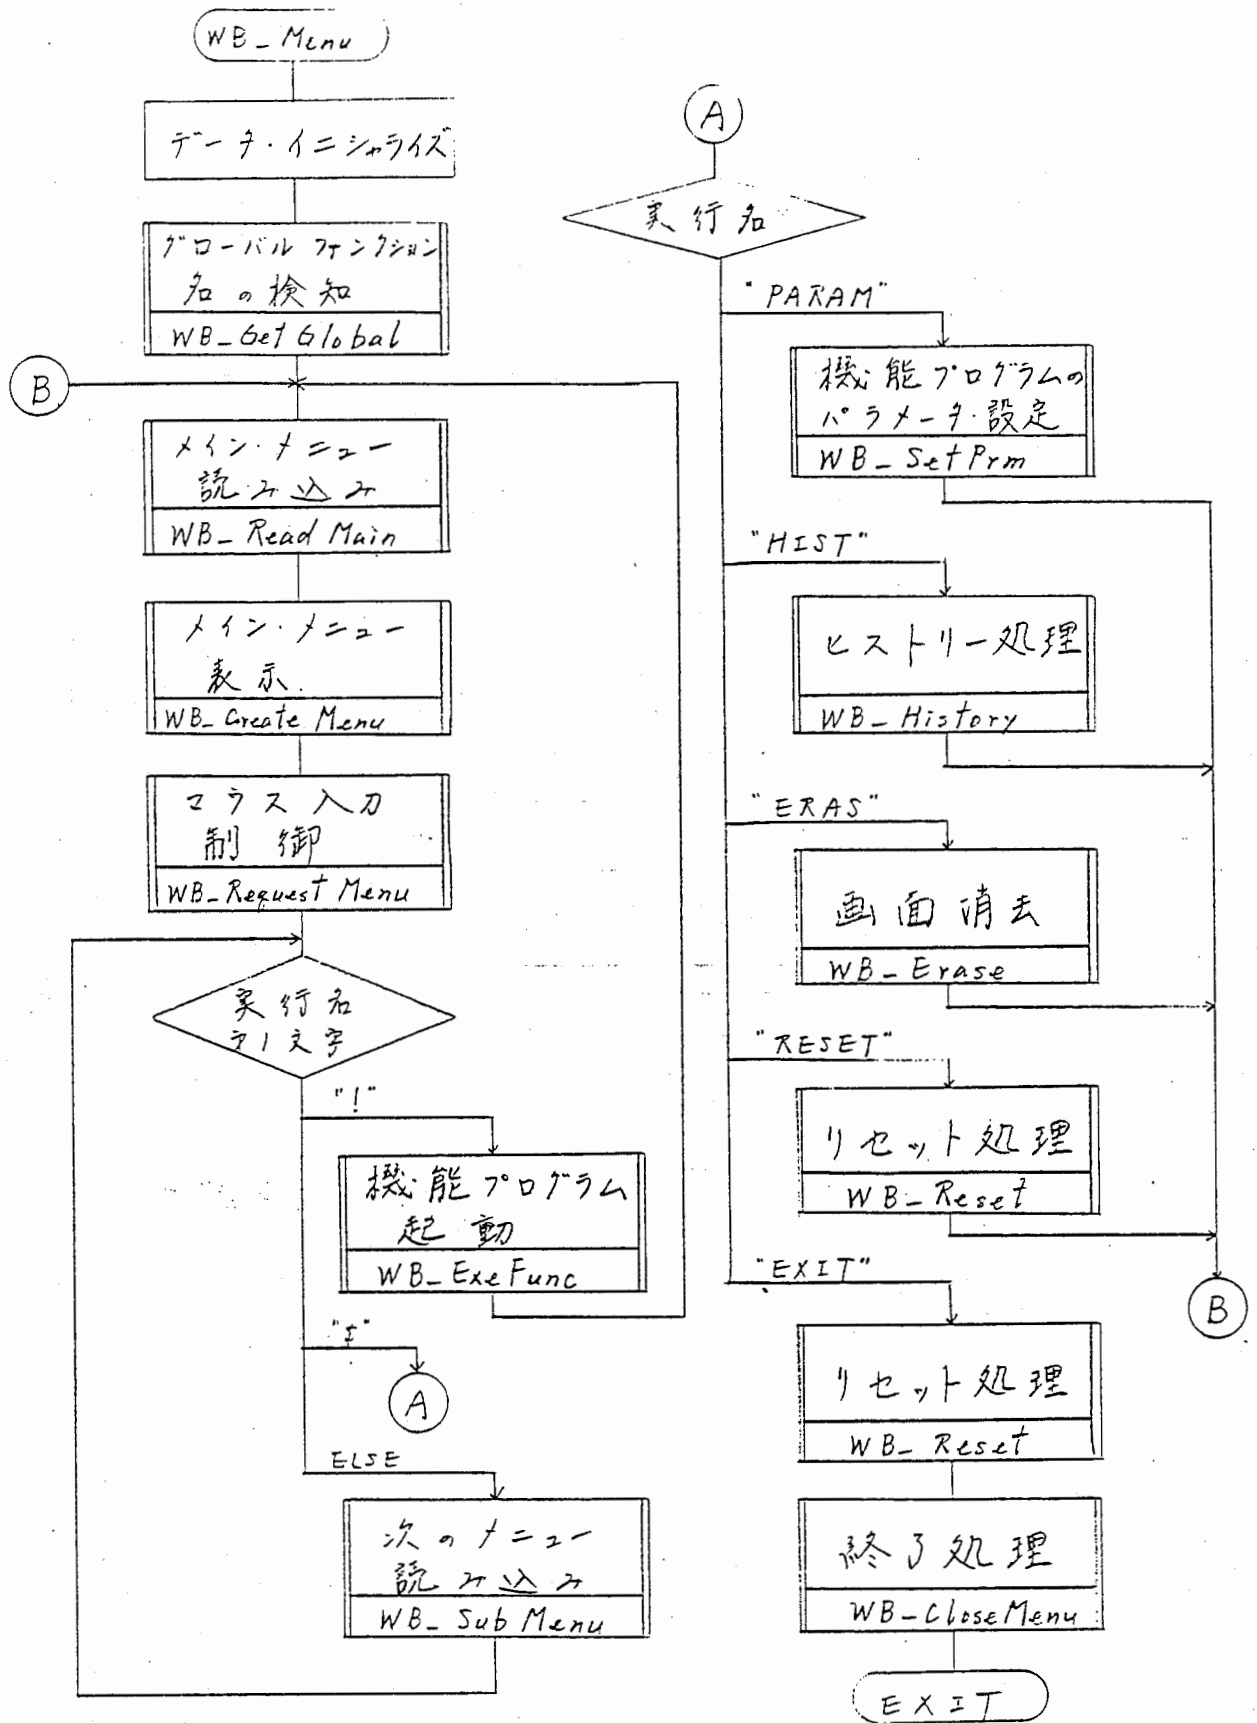 WB_Menu
データ・イニシャライズ
グローバル ファンクション
名の検知
WB_Get Global
B
メイン・メニュー
読み込み
WB_Read Main
メイン・メニュー
表示
WB_Create Menu
マウス入力
制御
WB_Request Menu
実行名
第1文字
"!"
機能プログラム
起動
WB_Exe Func
A
ELSE
次のメニュー
読み込み
WB_Sub Menu
A
実行名
"PARAM"
機能プログラムの
パラメータ・設定
WB_SetPrm
"HIST"
ヒストリー処理
WB_History
"ERAS"
画面消去
WB_Erase
"RESET"
リセット処理
WB_Reset
"EXIT"
B
リセット処理
WB_Reset
終了処理
WB_CloseMenu
EXIT